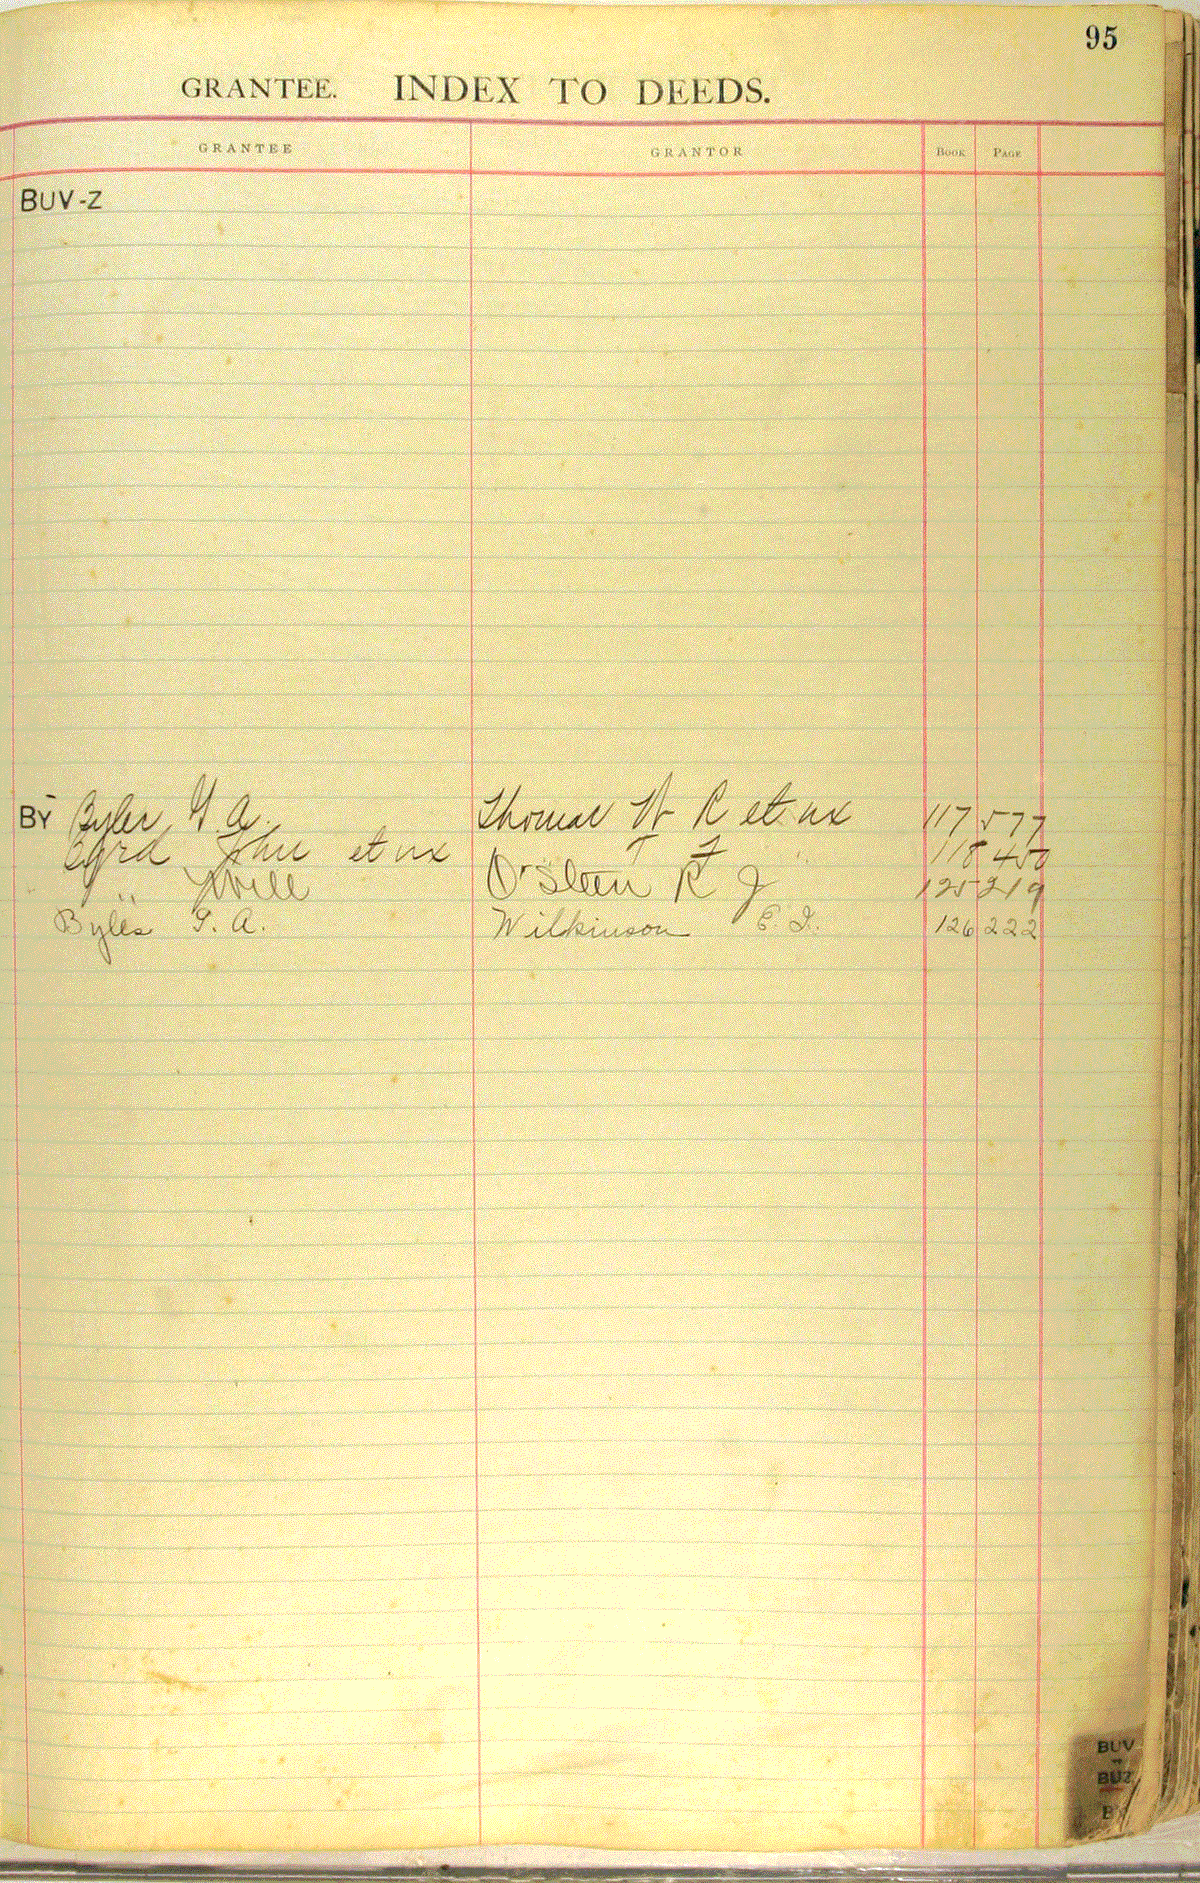 95
GRANTEE. INDEX TO DEEDS.
GRANTEE GRANTOR BOOK PAGE
BUV-Z
BY Byler G. A. Thomas W R et ux 117 577
Byrd John et ux " " 118 450
" Will O'Steen R J 125 219
Byles G. A. Wilkinson E. I. 126 222
BUV
BUZ
BY